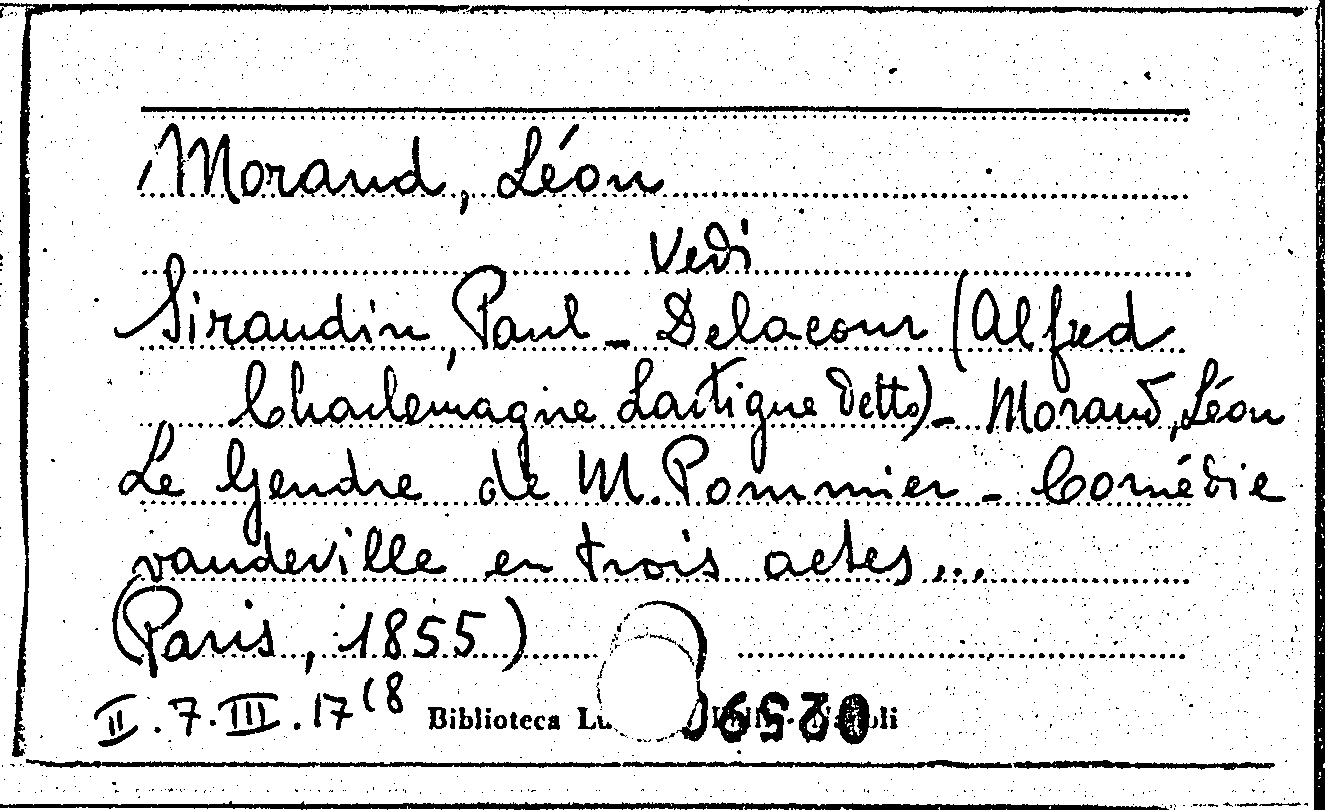 Morand, Léon
Vedi
Siraudin, Paul - Delacour (Alfred
Charlemagne Lartigue detto) - Morand, Léon
Le Gendre de M. Pommier - Comédie
vaudeville en trois actes...
(Paris, 1855)
II. 7. III. 17 (8
Biblioteca